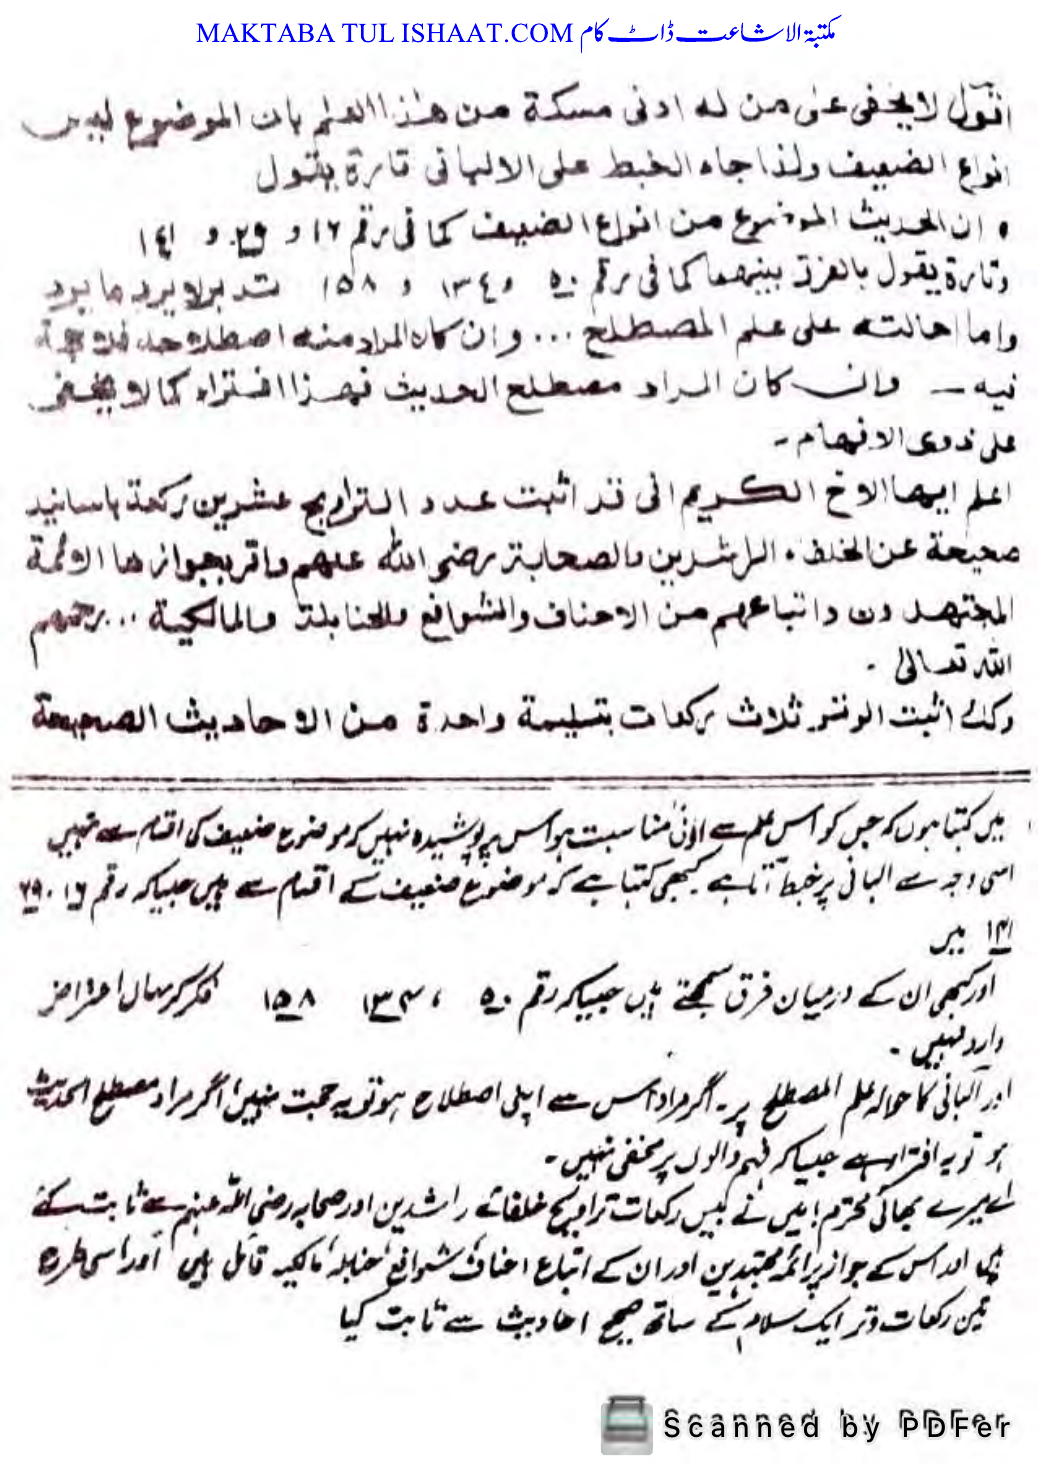 MAKTABA TUL ISHAAT.COM مکتبۃ الاشاعت ڈاٹ کام
اقول لا یخفی علی من له ادنی مسکة من هذا العلم بان الموضوع لیس من
انواع الضعیف ولذا جاء الخبط علی الالبانی تارة یقول
ه ان الحدیث الموضوع من انواع الضعیف کما فی رقم ١٦ و ٢٩ و ١٤١
وتارة یقول بالفرق بینهما کما فی رقم ٥٠ و ١٣٤ و ١٥٨ تدبر لا یرد ما یرد
واما احالته علی علم المصطلح ... وان کان المراد منه اصطلاحه فلا حجة
فیه ــ وان کان المراد مصطلح الحدیث فهذا افتراء کما لا یخفی
علی ذوی الافهام ۔
اعلم ایها الاخ الکریم انی قد اثبت عدد التراویح عشرین رکعة باسانید
صحیحة عن الخلفاء الراشدین والصحابة رضی الله علیهم واقر بجوازها الائمة
المجتهدون واتباعهم من الاحناف والشوافع والحنابلة والمالکیة ... رحمهم
الله تعالیٰ ۔
وکذا اثبت الوتر ثلاث رکعات بتسلیمة واحدة من الاحادیث الصحیحة
میں کہتا ہوں کہ جس کو اس علم سے ادنیٰ مناسبت ہو اس پر پوشیدہ نہیں کہ موضوع ضعیف کی اقسام سے نہیں
اسی وجہ سے البانی پر خبط آتا ہے کبھی کہتا ہے کہ موضوع ضعیف کے اقسام سے ہیں جیسا کہ رقم ١٦، ٢٩
١٤١ میں
اور کبھی ان کے درمیان فرق سمجھتے ہیں جیسا کہ رقم ٥٠ ، ١٣٤ ١٥٨ فکر کر یہاں اعتراض
وارد نہیں ۔
اور البانی کا حوالہ علم المصطلح پر۔ اگر مراد اس سے اپنی اصطلاح ہو تو یہ حجت نہیں اگر مراد مصطلح الحدیث
ہو تو یہ افتراء ہے جیسا کہ فہم والوں پر مخفی نہیں ۔
اے میرے بھائی محترم! میں نے بیس رکعات تراویح خلفائے راشدین اور صحابہ رضی اللہ عنہم سے ثابت کئے
ہیں اور اس کے جواز پر ائمہ مجتہدین اور ان کے اتباع احناف، شوافع، حنابلہ، مالکیہ قائل ہیں اور اسی طرح
تین رکعات وتر ایک سلام کے ساتھ صحیح احادیث سے ثابت کیا
Scanned by PDFer